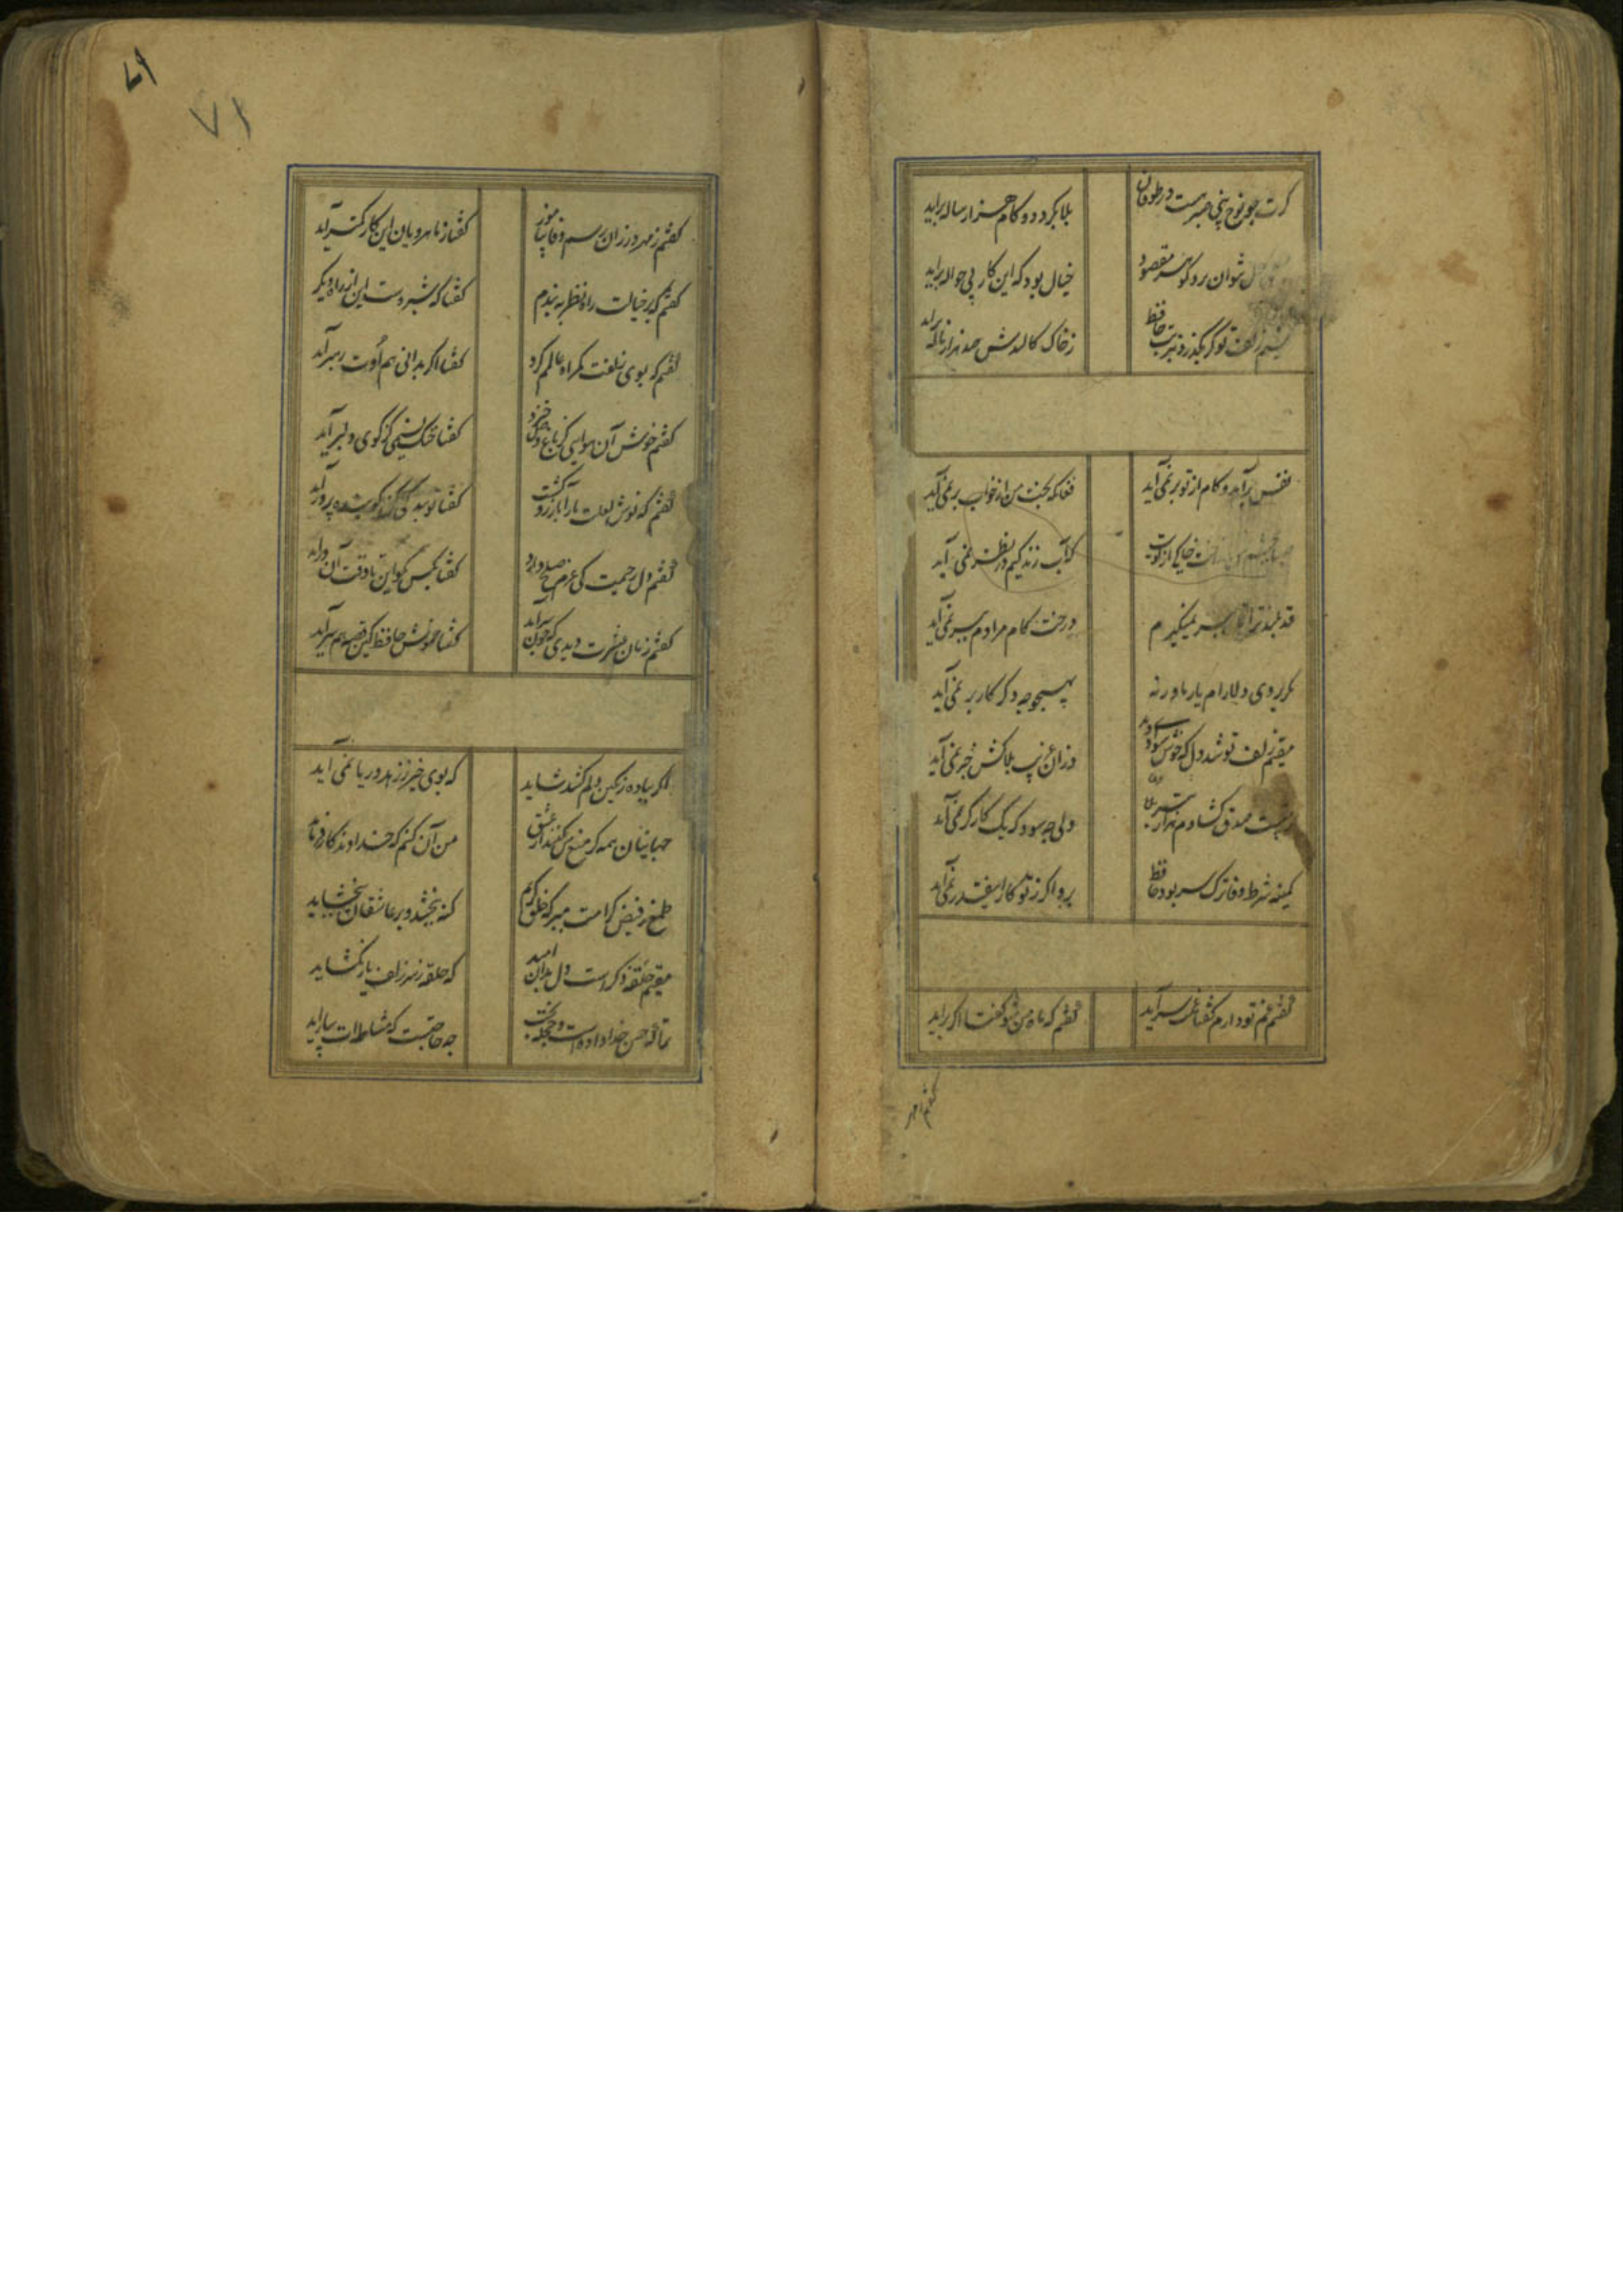 کرت چو نوح نبی صبر هست در طوفان
بلا بگردد و کام هزار ساله برآید
نتوان برد گوهر مقصود
خیال بود که این کار بی حواله برآید
نسیم زلف تو گر بگذرد بتربت حافظ
ز خاک کالبدش صد هزار ناله برآید
نفس برآمد و کام از تو بر نمی آید
فغان که بخت من از خواب بر نمی آید
خاکی از کویت
که آب زندگیم در نظر نمی آید
قد بلند ترا تا ببر نمیگیرم
درخت کام مرادم ببر نمی آید
مگر بروی دلارام یار ما ورنه
بهیچوجه دگر کار بر نمی آید
مقیم زلف تو شد دل که خوش سوادی دید
وزان غریب بلاکش خبر نمی آید
ز شست صدق گشادم هزار تیر بلا
ولی چه سود که یک کارگر نمی آید
کمینه شرط وفا ترک سر بود حافظ
برو اگر ز تو کار اینقدر نمی آید
گفتم غم تو دارم گفتا غمت سر آید
گفتم که ماه من شو گفتا اگر برآید
گفتم ز مهر
۷۱
۷۱
گفتم ز مهر ورزان رسم وفا بیاموز
گفتا ز ماهرویان این کار کمتر آید
گفتم که بر خیالت راه نظر به بندم
گفتا که شب روست این از راه دیگر
گفتم که بوی زلفت گمراه عالمم کرد
گفتا اگر بدانی هم اوت رهبر آید
گفتم خوش آن هوایی کز باغ خلد خیزد
گفتا خنک نسیمی کز کوی دلبر آید
گفتم که نوش لعلت ما را بآرزو کشت
گفتا تو بندگی کن کو بنده پرور آید
گفتم دل رحیمت کی عزم صلح دارد
گفتا بکس مگو این تا وقت آن درآید
گفتم زمان عشرت دیدی که چون سر آید
گفتا خموش حافظ کین قصه هم سر آید
اگر بباده رنگین دلم کشد شاید
که بوی خیر ز زهد و ریا نمی آید
جهانیان همه گر منع من کنند از عشق
من آن کنم که خداوندگار فرماید
طمع ز فیض کرامت مبر که خلق کریم
گنه ببخشد و بر عاشقان ببخشاید
مقیم حلقه ذکر است دل بدان امید
که حلقه ز سر زلف یار بگشاید
ترا که حسن خداداده است و حجله بخت
چه حاجتست که مشاطه ات بیاراید